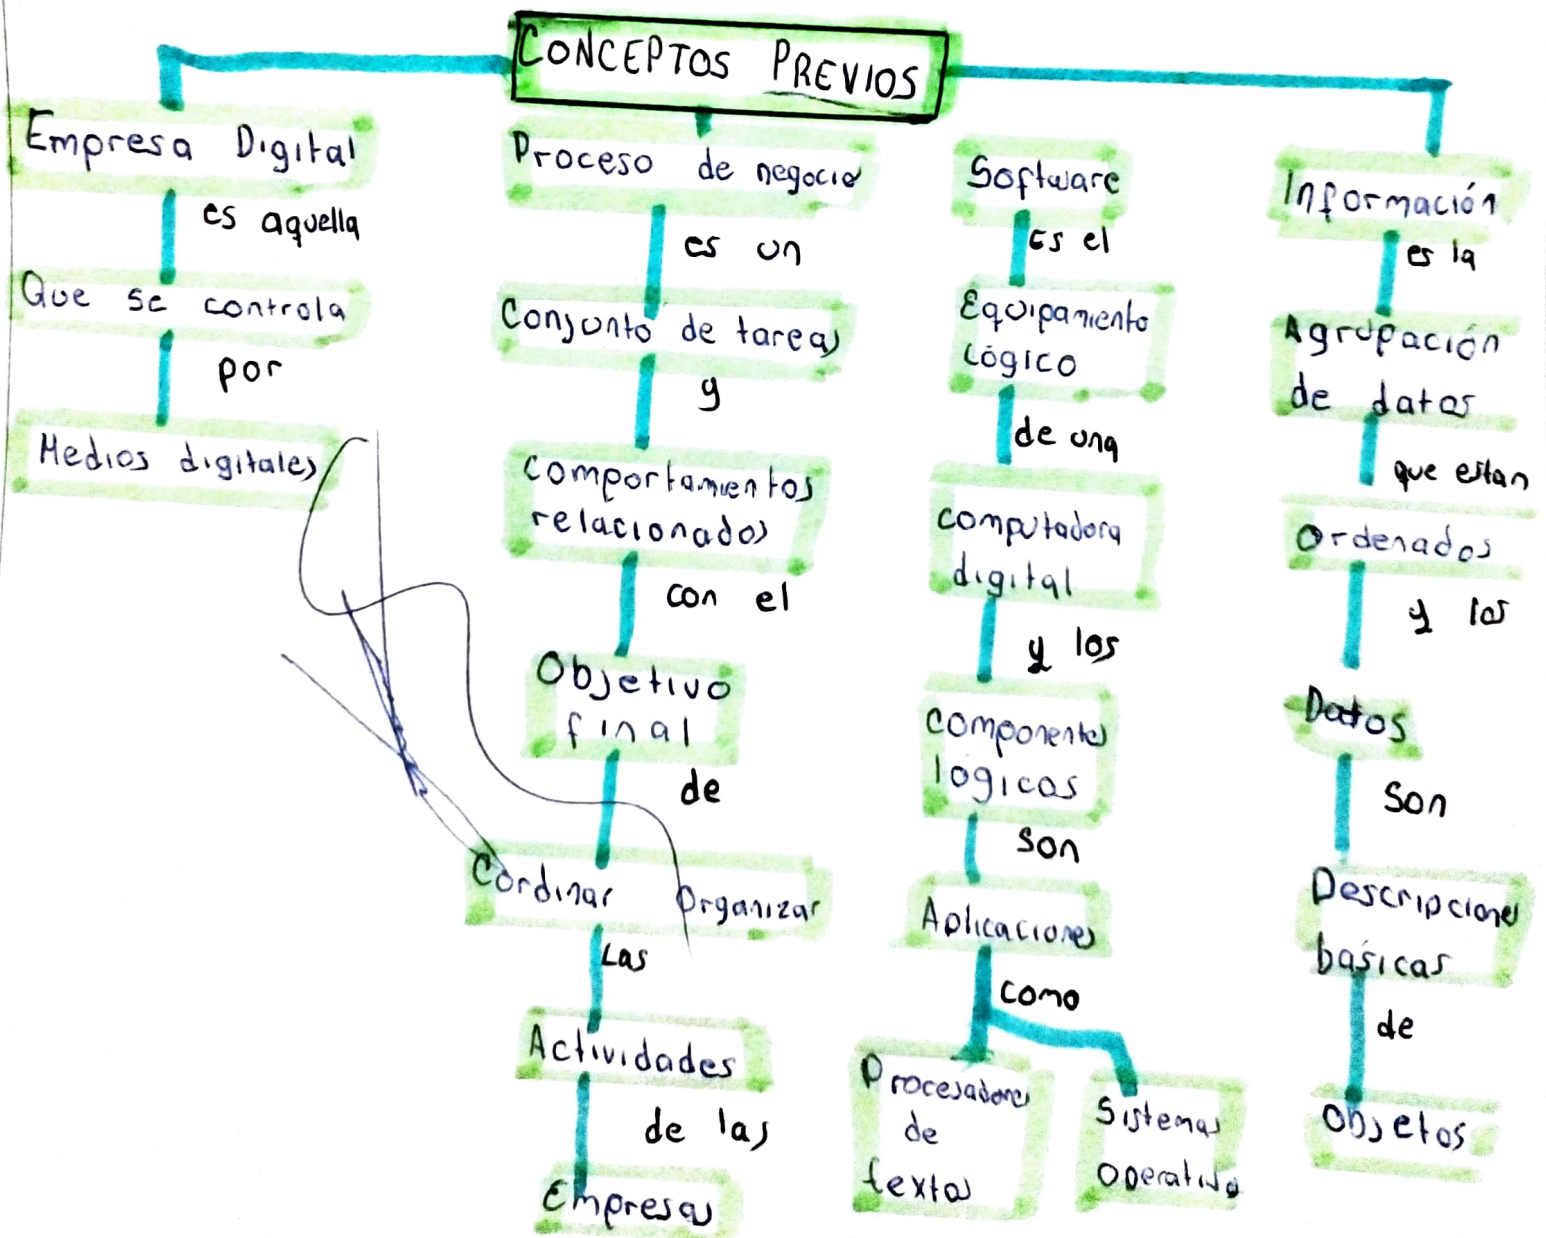 CONCEPTOS PREVIOS
Empresa Digital
es aquella
Que se controla
por
Medios digitales
Proceso de negocio
es un
Conjunto de tareas
y
comportamientos
relacionados
con el
Objetivo
final
de
Cordinar Organizar
Las
Actividades
de las
Empresas
Software
Es el
Equipamiento
Lógico
de una
computadora
digital
y los
componentes
lógicos
son
Aplicaciones
como
Procesadores
de
textos
Sistemas
operativo
Información
es la
Agrupación
de datos
que estan
Ordenados
y los
Datos
Son
Descripciones
basicas
de
Objetos